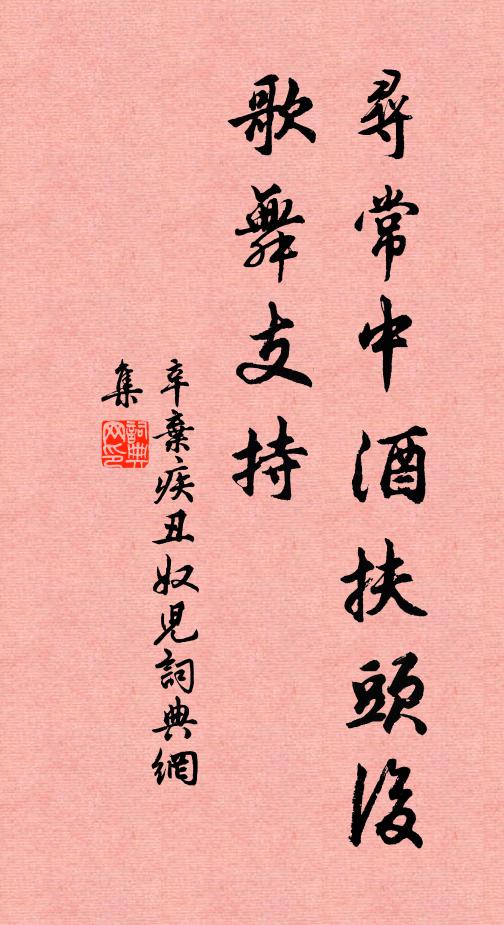 尋常中酒扶頭後
歌舞支持
辛棄疾丑奴兒詞典網
集
詞典網印